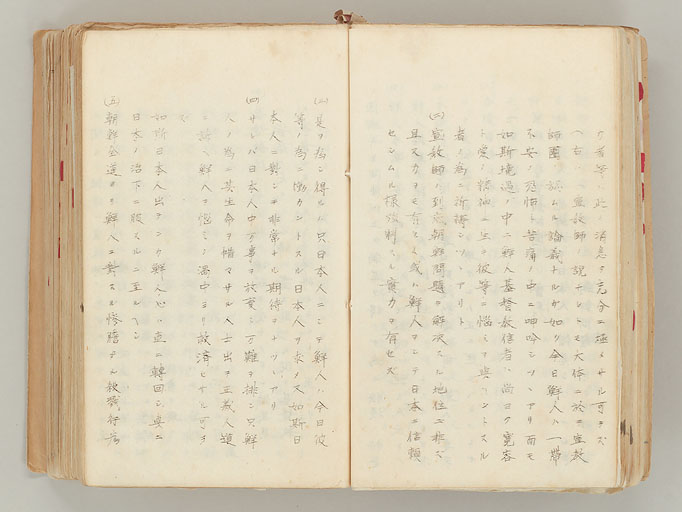 ノ者等ハ此ノ消息ヲ充分ニ極メサル可ラズ
右ハ宣教師ノ説ナレトモ大体ニ於テ宣教
師團ノ論議ナルガ如ク今日鮮人ハ一帶
不安ノ恐怖ト苦痛ノ中ニ呻吟シツヽアリ而モ
如斯境遇ノ中ニ鮮人基督教信者ハ尚ヨク寛容
ト愛ノ精神ニ生キ彼等ニ悩ミヲ與ヘントスル
者ノ為ニ祈禱シツヽアリト
(二)宣教師ハ到底朝鮮問題ヲ解決スル地位ニ非ズ
且ス力モ有セズ或ハ鮮人ヲシテ日本ニ信頼
セシムル様強制スル實力ヲ有セズ
(三)是ヲ為シ得ルハ只日本人ニシテ鮮人ハ今日彼
等ノ為ニ働カントスル日本人ヲ求メ又如斯日
本人ニ對シテ非常ナル期待ヲナシツヽアリ
(四)サレバ日本人中万事ヲ放棄シ万難ヲ排シ只鮮
人ノ為ニ其生命ヲ惜マサル人士出テ正義人道
ヲ訴ヘ鮮人ヲ悩ミノ渦中ヨリ救済セサル可ラ
ズ
如斯日本人出テンカ鮮人心ハ直ニ轉回シ真ニ
日本ノ治下ニ服スルニ至ルヘシ
(五)朝鮮全道ヨリ鮮人ニ對スル惨膽ナル殺戮行為